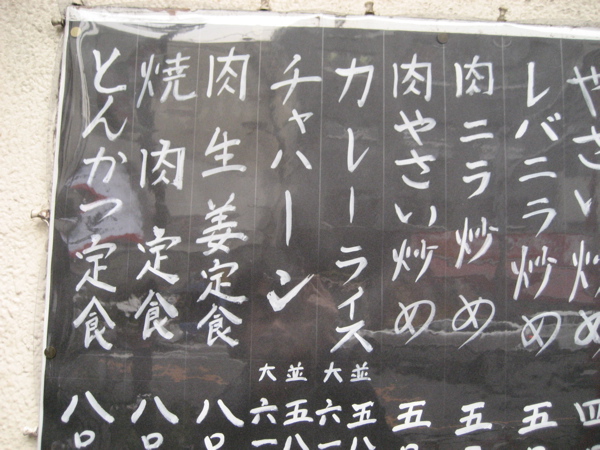 やさい炒め 四
レバニラ炒め 五
肉ニラ炒め 五
肉やさい炒め 五
カレーライス 並 五八 大 六一
チャハーン 並 五八 大 六一
肉生姜定食 八〇
焼肉定食 八〇
とんかつ定食 八〇